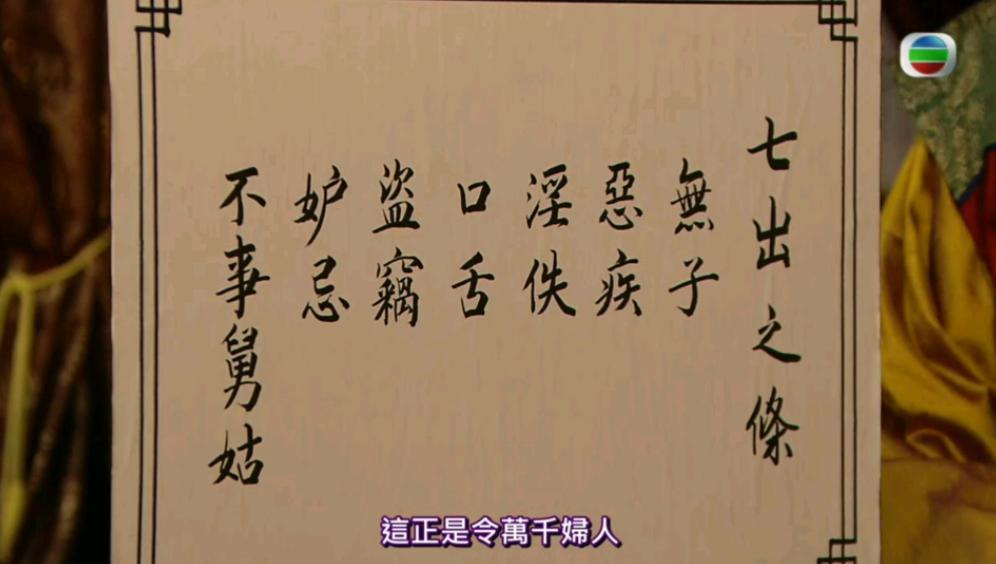 七出之條
無子
惡疾
淫佚
口舌
盜竊
妒忌
不事舅姑
這正是令萬千婦人